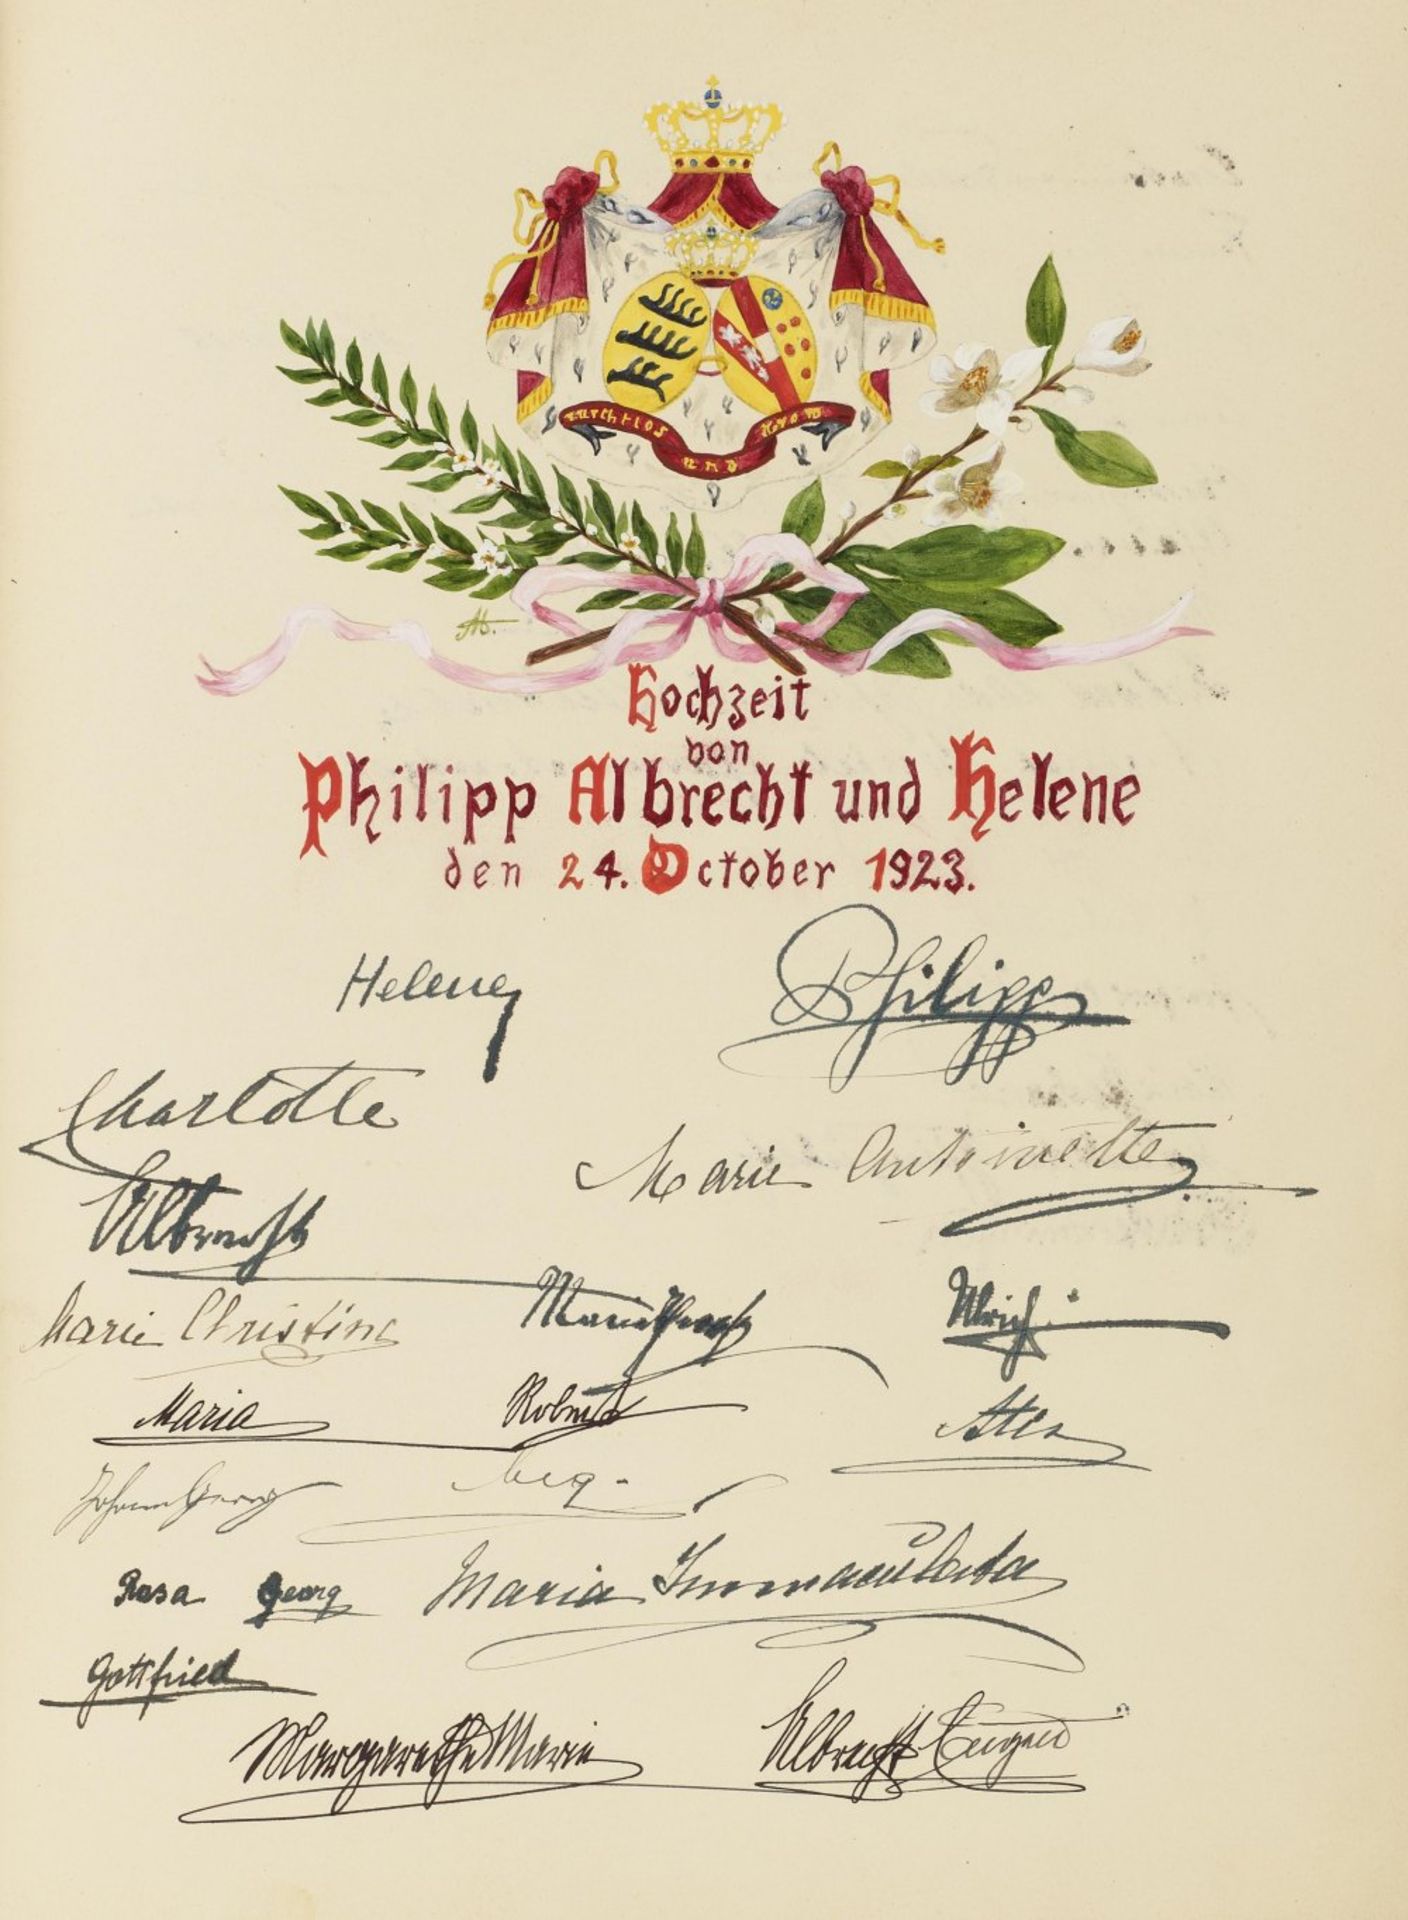 furchtlos und trew
Hochzeit
von
Philipp Albrecht und Helene
den 24. October 1923.
Helene Philipp
Charlotte
Marie Antoinette
Albrecht
Marie Christine Maria Theresia Ulrich
Maria Robert
Johann Georg
Rosa Georg Maria Immaculata
Gottfried
Margarethe Marie Albrecht Eugen